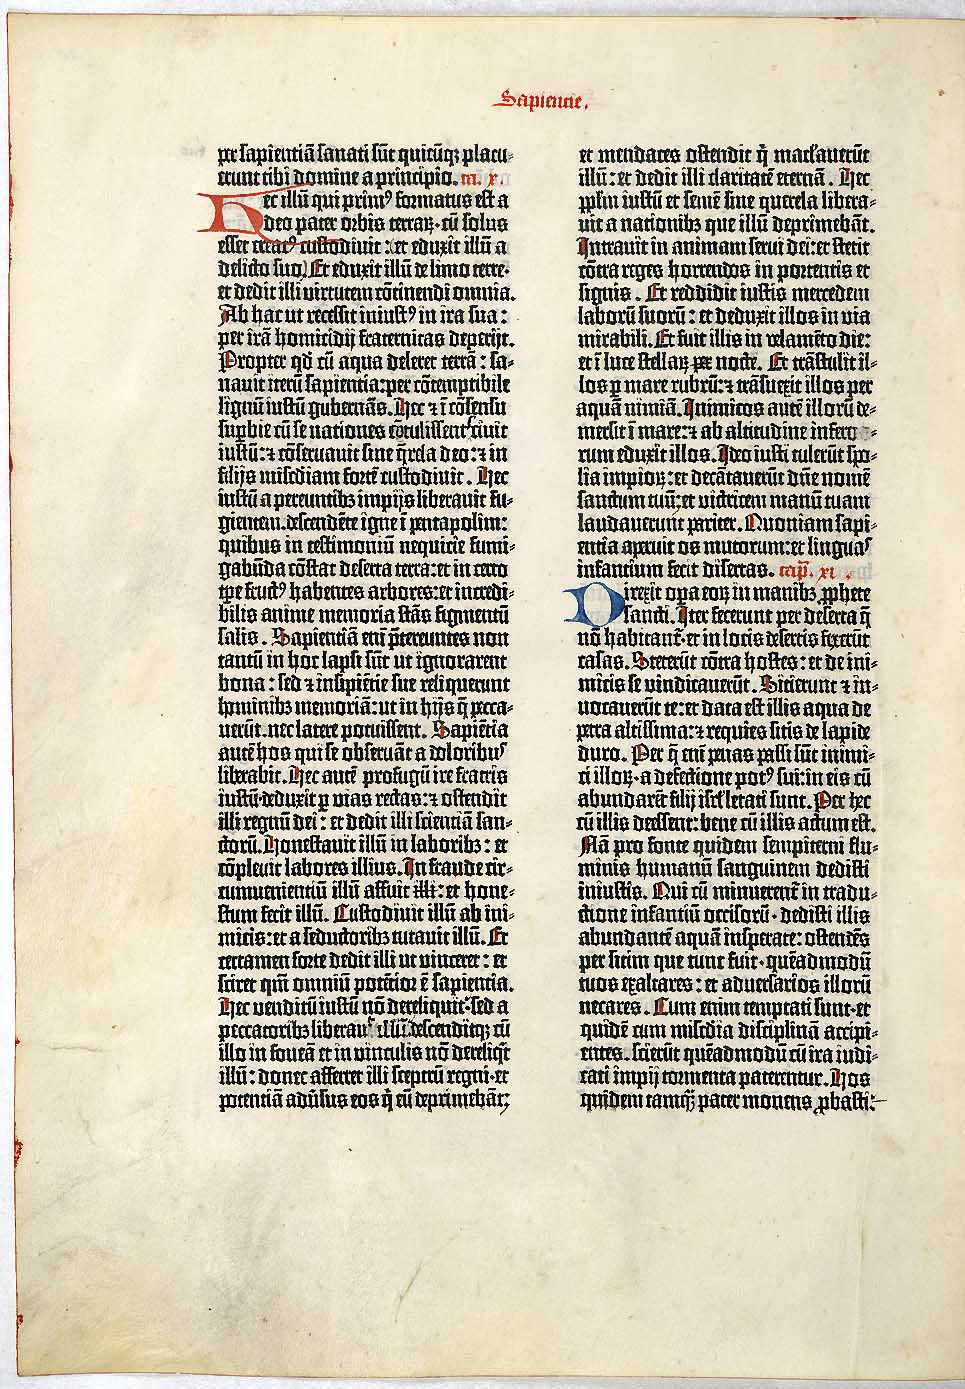 Sapiencie.
per sapientiã sanati sũt quicũqꝫ placu-
erunt tibi domine a principio. ca. x.
Hec illũ qui primꝰ formatus est a
deo pater orbis terraꝝ · cũ solus
esset creatꝰ custodiuit : (et eduxit illũ a
delicto suo) Et eduxit illũ de limo terre ·
et dedit illi virtutem cõtinendi omnia.
Ab hac ut recessit iniustꝰ in ira sua :
per irã homicidij fraternitas deperijt.
Propter qd̃ cũ aqua deleret terrã : sa-
nauit iterũ sapientia : per cõtemptibile
lignũ iustũ gubernãs. Hec ⁊ ĩ cõsensu
supͥbie cũ se nationes cõtulissent sciuit
iustũ : ⁊ cõseruauit sine q̃rela deo : ⁊ in
filijs mis̃diam fortẽ custodiuit. Hec
iustũ a pereuntibꝫ impijs liberauit fu-
gientem · descendẽte igne ĩ pentapolim :
quibus in testimoniũ nequicie fumi-
gabũda cõstat deserta terra : et in certo
tp̃e fructꝰ habentes arbores : et incredi-
bilis anime memoria stãs figmentũ
salis. Sapientiã eni p̃tereuntes non
tantũ in hoc lapsi sũt ut ignorarent
bona : sed ⁊ insipiẽtie sue reliquerunt
hominibꝫ memoriã : ut in hijs q̃ pecca-
uerũt · nec latere potuissent. Sapiẽtia
autẽ hos qui se obseruãt a doloribus
liberabit. Hec autẽ profugũ ire fratris
iustũ · deduxit ꝑ vias rectas : ⁊ ostendit
illi regnũ dei : et dedit illi scientiã san-
ctorũ. Honestauit illũ in laboribꝫ : et
cõpleuit labores illius. In fraude cir-
cumuenientiũ illũ affuit illi : et hone-
stum fecit illũ. Custodiuit illũ ab ini-
micis : et a seductoribꝫ tutauit illũ. Et
certamen forte dedit illi ut vinceret : et
sciret qm̃ omniũ potẽtior ẽ sapientia.
Hec venditũ iustũ nõ dereliquit · sed a
peccatoribꝫ liberauit illũ : descenditqꝫ cũ
illo in foueã et in vinculis nõ dereliq̃t
illũ : donec afferret illi sceptrũ regni · et
potentiã aduʹsus eos q̃ eũ deprimebãt :
et mendaces ostendit q̃ maclauerũt
illũ : et dedit illi claritatẽ eternã. Hec
pp̃lm iustũ et semẽ sine querela libera-
uit a nationibꝫ que illũ deprimebãt.
Intrauit in animam serui dei : et stetit
cõtra reges horrendos in portentis et
signis. Et reddidit iustis mercedem
laborũ suorũ : et deduxit illos in via
mirabili. Et fuit illis in velamẽto diei :
et ĩ luce stellaꝝ per nocte. Et trãstulit il-
los ꝑ mare rubrũ : ⁊ trãsuexit illos per
aquã nimiã. Inimicos autẽ illorũ de-
mersit ĩ mare : ⁊ ab altitudine infero-
rum eduxit illos. Ideo iusti tulerũt spo-
lia impioꝝ : et decãtauerũt dñe nomẽ
sanctum tuũ : et victricem manũ tuam
laudauerunt pariter. Quoniam sapi-
entia aperuit os mutorum : et linguas
infantium fecit disertas. cap̃. xi .
Direxit oꝑa eoꝝ in manibꝫ ꝓphete
sancti. Iter fecerunt per deserta q̃
nõ habitant̃ · et in locis desertis fixerũt
casas. Steterũt cõtra hostes : et de ini-
micis se vindicauerũt. Sitierunt ⁊ in-
uocauerũt te : et data est illis aqua de
petra altissima : ⁊ requies sitis de lapide
duro. Per q̃ eni penas passi sũt inimi-
ci illoꝝ · a defectione potꝰ sui : in eis cũ
abundarẽt filij isrl̃ letati sunt. Per hec
cũ illis deessent : bene cũ illis actum est.
Nã pro fonte quidem sempiterni flu-
minis humanũ sanguinem dedisti
iniustis. Qui cũ minuerent̃ in tradu-
ctione infantiũ occisorũ · dedisti illis
abundantẽ aquã insperate : ostendẽs
per sitim que tunc fuit · quẽadmodũ
tuos exaltares : et aduersarios illorũ
necares. Cum enim temptati sunt · et
quidẽ cum mis̃dia disciplinã accipi-
entes · scierũt quẽadmodũ cũ ira iudi-
cati impij tormenta paterentur. Hos
quidem tamqꝫ̃ pater monens ꝓbasti :